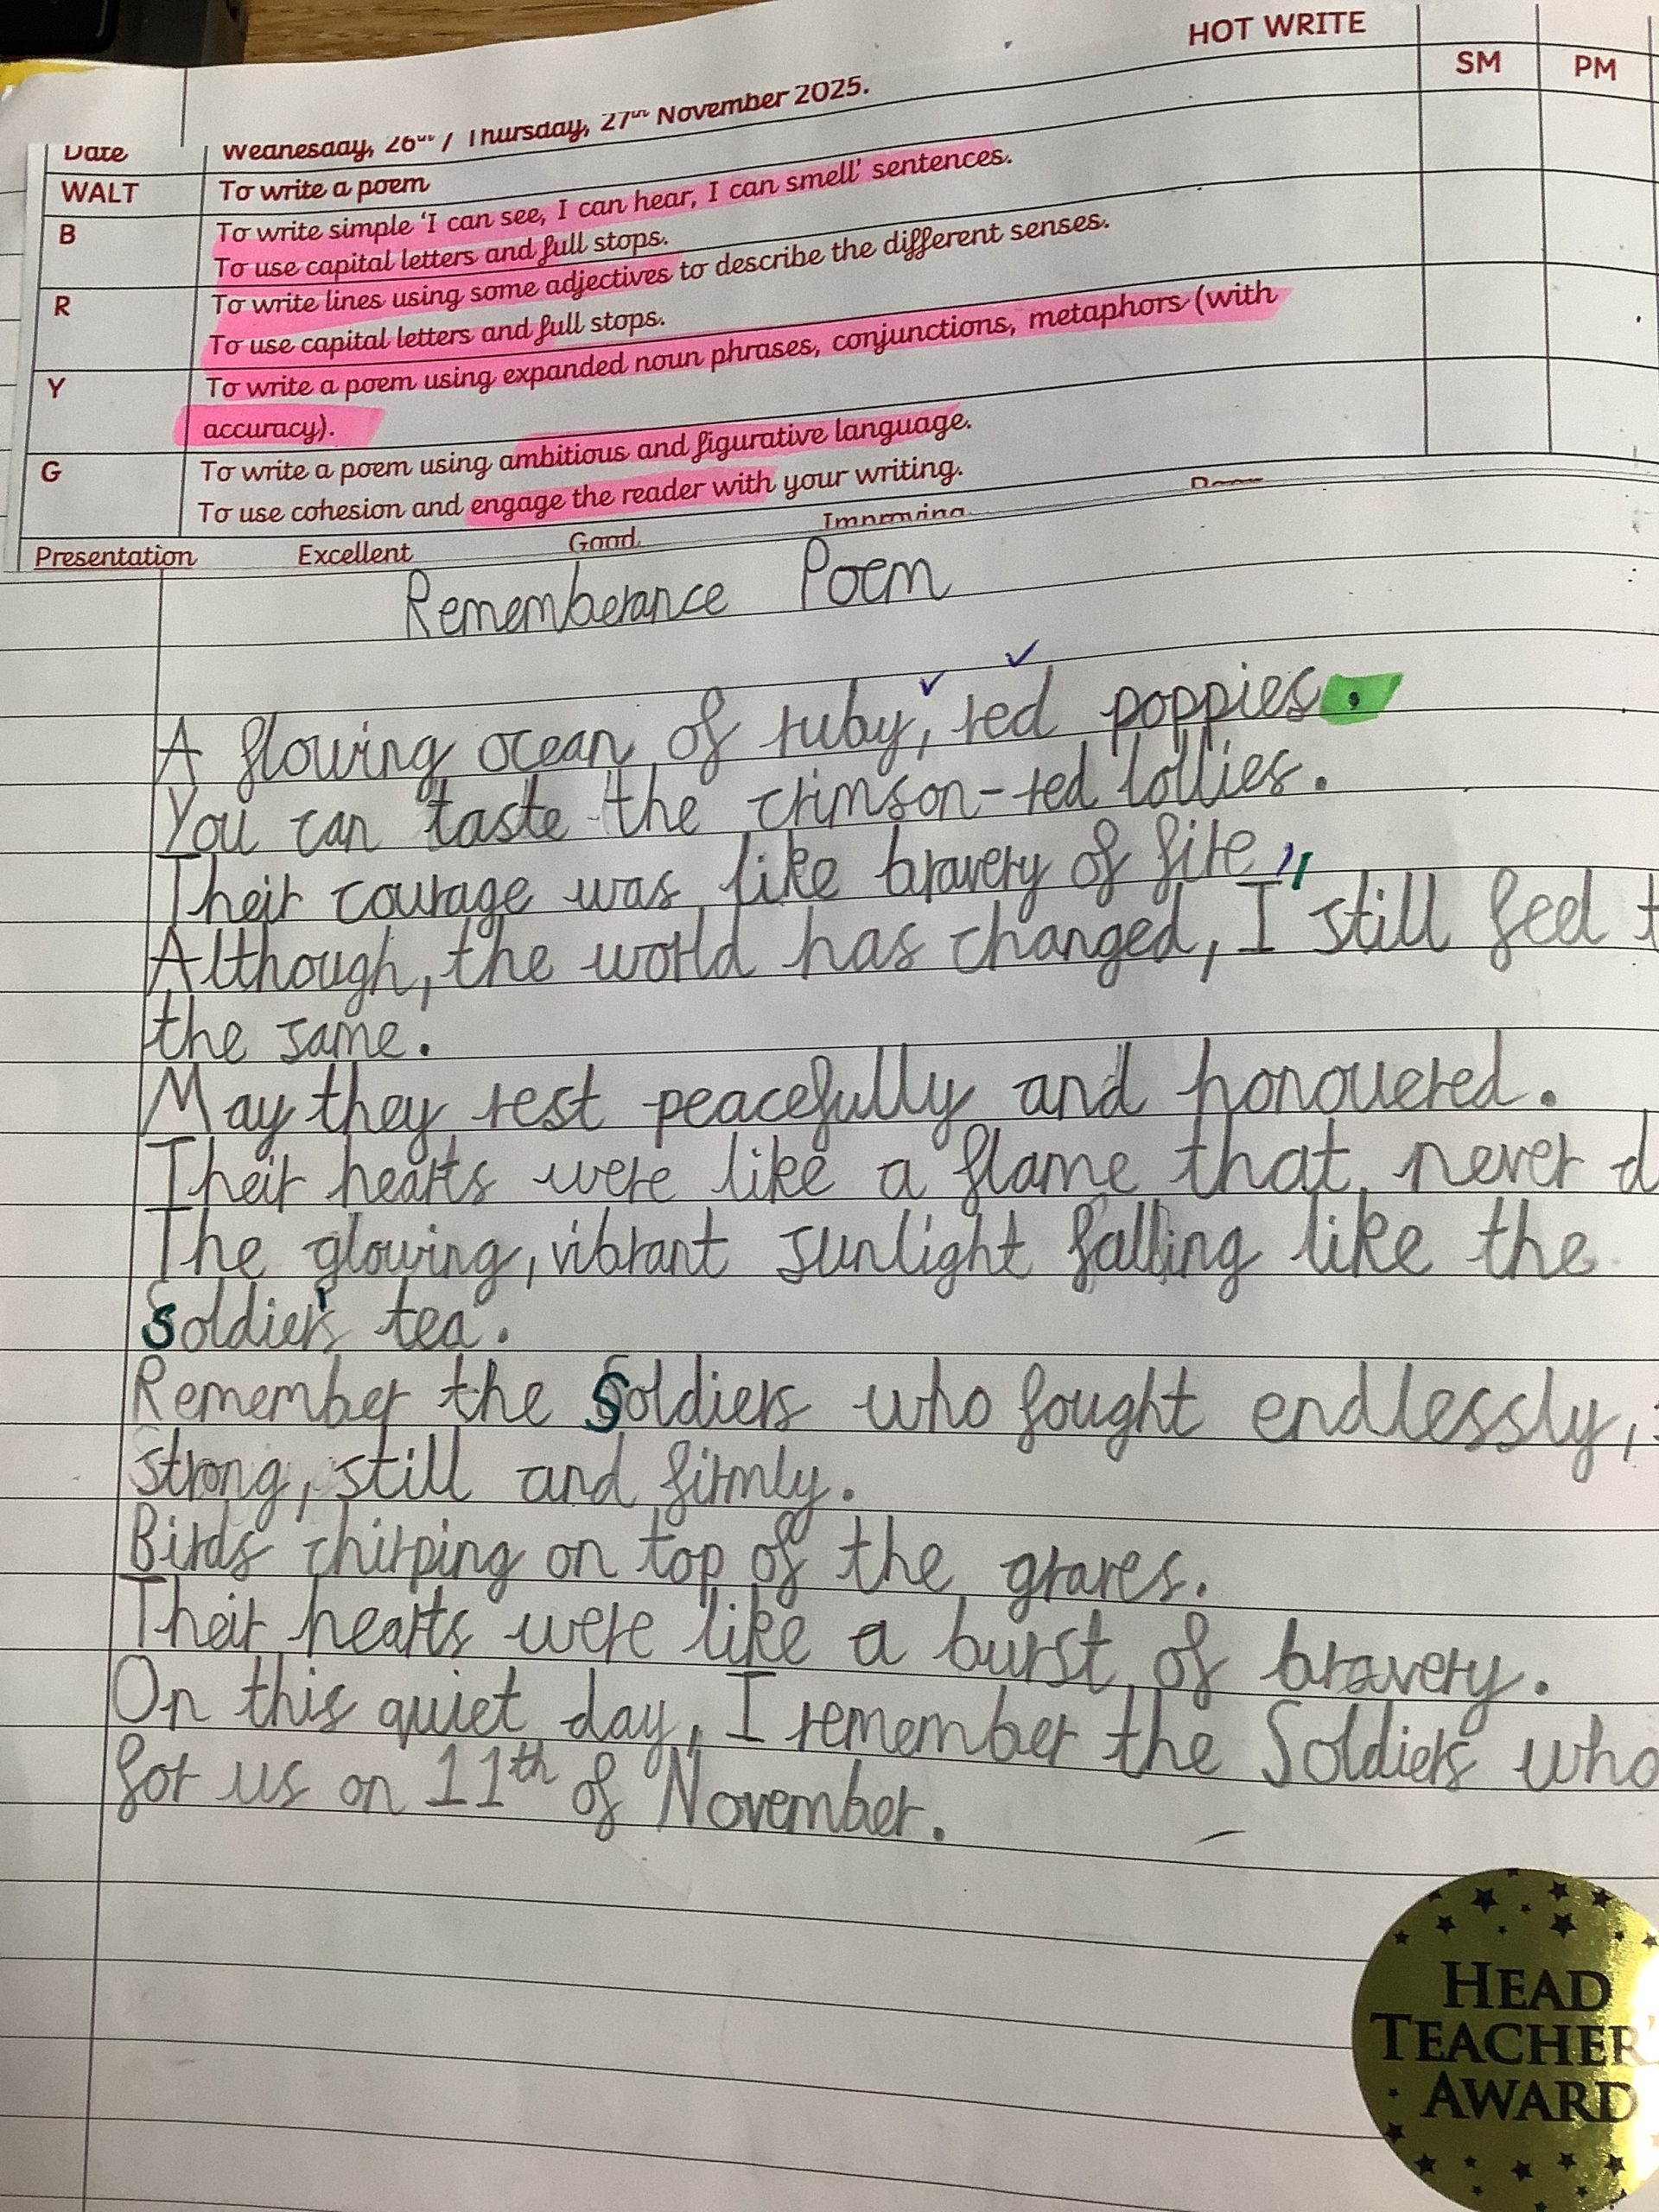 HOT WRITE
SM PM
Date Wednesday, 26th / Thursday, 27th November 2025.
WALT To write a poem
B To write simple ‘I can see, I can hear, I can smell’ sentences.
To use capital letters and full stops.
R To write lines using some adjectives to describe the different senses.
To use capital letters and full stops.
Y To write a poem using expanded noun phrases, conjunctions, metaphors (with
accuracy).
G To write a poem using ambitious and figurative language.
To use cohesion and engage the reader with your writing.
Presentation Excellent Good Improving
Rememberance Poem
A flowing ocean of ruby, red poppies.
You can taste the crimson-red lollies.
Their courage was like bravery of fire,
Although, the world has changed, I still feel t
the same.
May they rest peacefully and honouered.
Their hearts were like a flame that never d
The glowing, vibrant sunlight falling like the
soldier's tea.
Remember the soldiers who fought endlessly,
strong, still and firmly.
Birds chirping on top of the graves.
Their hearts were like a burst of bravery.
On this quiet day, I remember the Soldiers who
for us on 11th of November.
HEAD
TEACHER'
AWARD